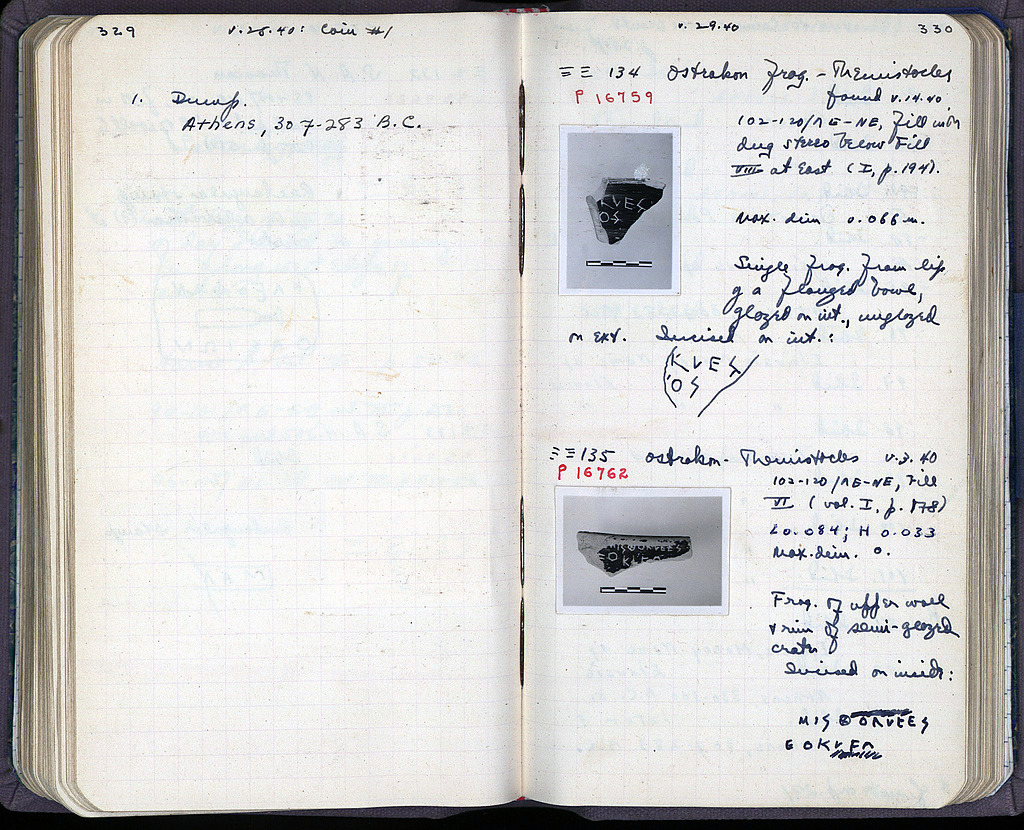 329
v.28.40: Coin #1
1. Dump.
Athens, 307-283 B.C.
v.29.40
330
ΞΞ 134 Ostrakon frag. - Themistocles
P 16759
found v.14.40,
102-120/ΛE-NE, Fill
dug stereo below Fill
VIII at East (I, p.194).
Max. dim 0.066 m.
KVEΣ
OΣ
Single frag. from lip
of a flanged bowl,
glazed on int., unglazed
on ext. Incised on int.:
KVEΣ
'OΣ
ΞΞ 135 Ostrakon - Themistocles v.3.40
P 16762
102-120/ΛE-NE, Fill
VI (vol. I, p. 178)
L 0.084; H 0.033
Max. dim. 0.
Frag. of upper wall
& rim of semi-glazed
crater
Incised on inside: